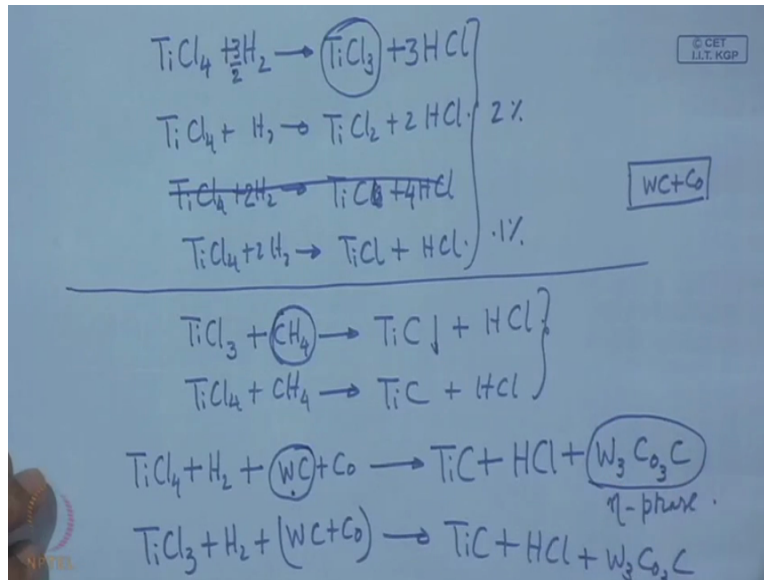 TiCl4 + 3/2 H2 → TiCl3 + 3HCl
© CET
I.I.T. KGP
TiCl4 + H2 → TiCl2 + 2HCl. 2%
TiCl4 + 2H2 → TiCl + 4HCl
WC+Co
TiCl4 + 2H2 → TiCl + HCl. .1%
TiCl3 + CH4 → TiC↓ + HCl
TiCl4 + CH4 → TiC + HCl
TiCl4 + H2 + WC + Co → TiC + HCl + W3Co3C
η-phase.
TiCl3 + H2 + (WC+Co) → TiC + HCl + W3Co3C
NPTEL